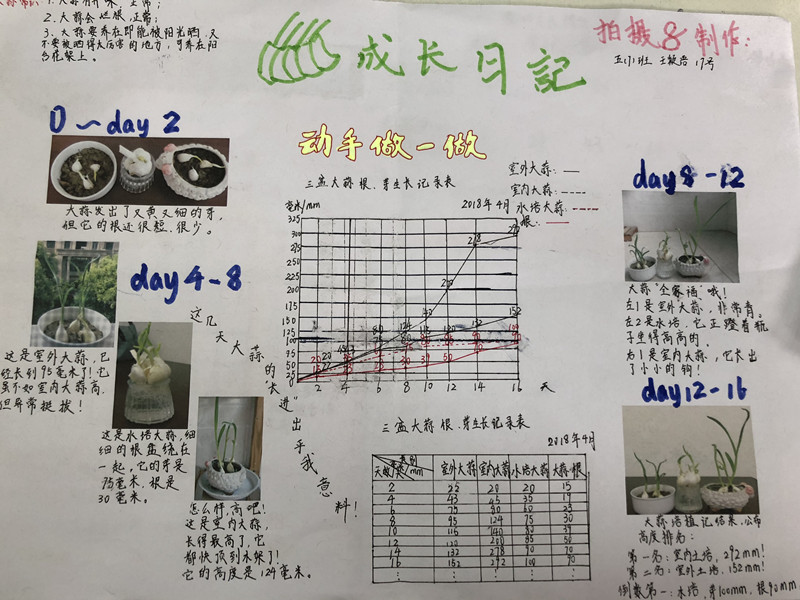 2、大蒜会烂根,正常;
3、大蒜要养在即能被阳光晒,又
不要被晒得太厉害的地方,可养在阳
台花架上。
成长日記
拍摄&制作:
五(1)班 王敏浩 17号
0~day 2
大蒜发出了又黄又细的芽,
但它的根还很短、很少。
动手做一做
三盆大蒜根、芽生长记录表
2018年4月
毫米/mm
室外大蒜:
室内大蒜:
水培大蒜:
根:
325
300
275
250
225
200
175
150
125
100
75
50
25
0
2 4 6 8 10 12 14 16 天
day 4-8
这是室外大蒜,已
经长到95毫米了!它
虽不如室内大蒜高,
但异常挺拔!
这是水培大蒜,细
细的根盘绕在
一起,它的芽是
75毫米,根是
30毫米。
怎么样,高吧!
这是室内大蒜,
长得最高了,它
都快顶到水架了!
它的高度是124毫米。
这几天大蒜的“长进”出乎我意料!
day 8-12
大蒜“全家福”哦!
左1是室外大蒜,非常青。
左2是水培,它正蹬着瓶
子坐得高高的。
右1是室内大蒜,它长出
了小小的钩!
day12-16
大蒜培植记结果,公布
高度排名:
第一名:室内土培,292mm!
第二名:室外土培,152mm!
倒数第一:水培,芽100mm,根90mm
三盆大蒜根、芽生长记录表
2018年4月
天数 类别 室外大蒜 室内大蒜 水培大蒜 大蒜·根
2 25 20 20 15
4 43 45 35 19
6 75 80 60 23
8 95 124 75 30
10 116 140 80 39
12 120 200 85 50
14 132 278 90 70
16 152 292 100 90